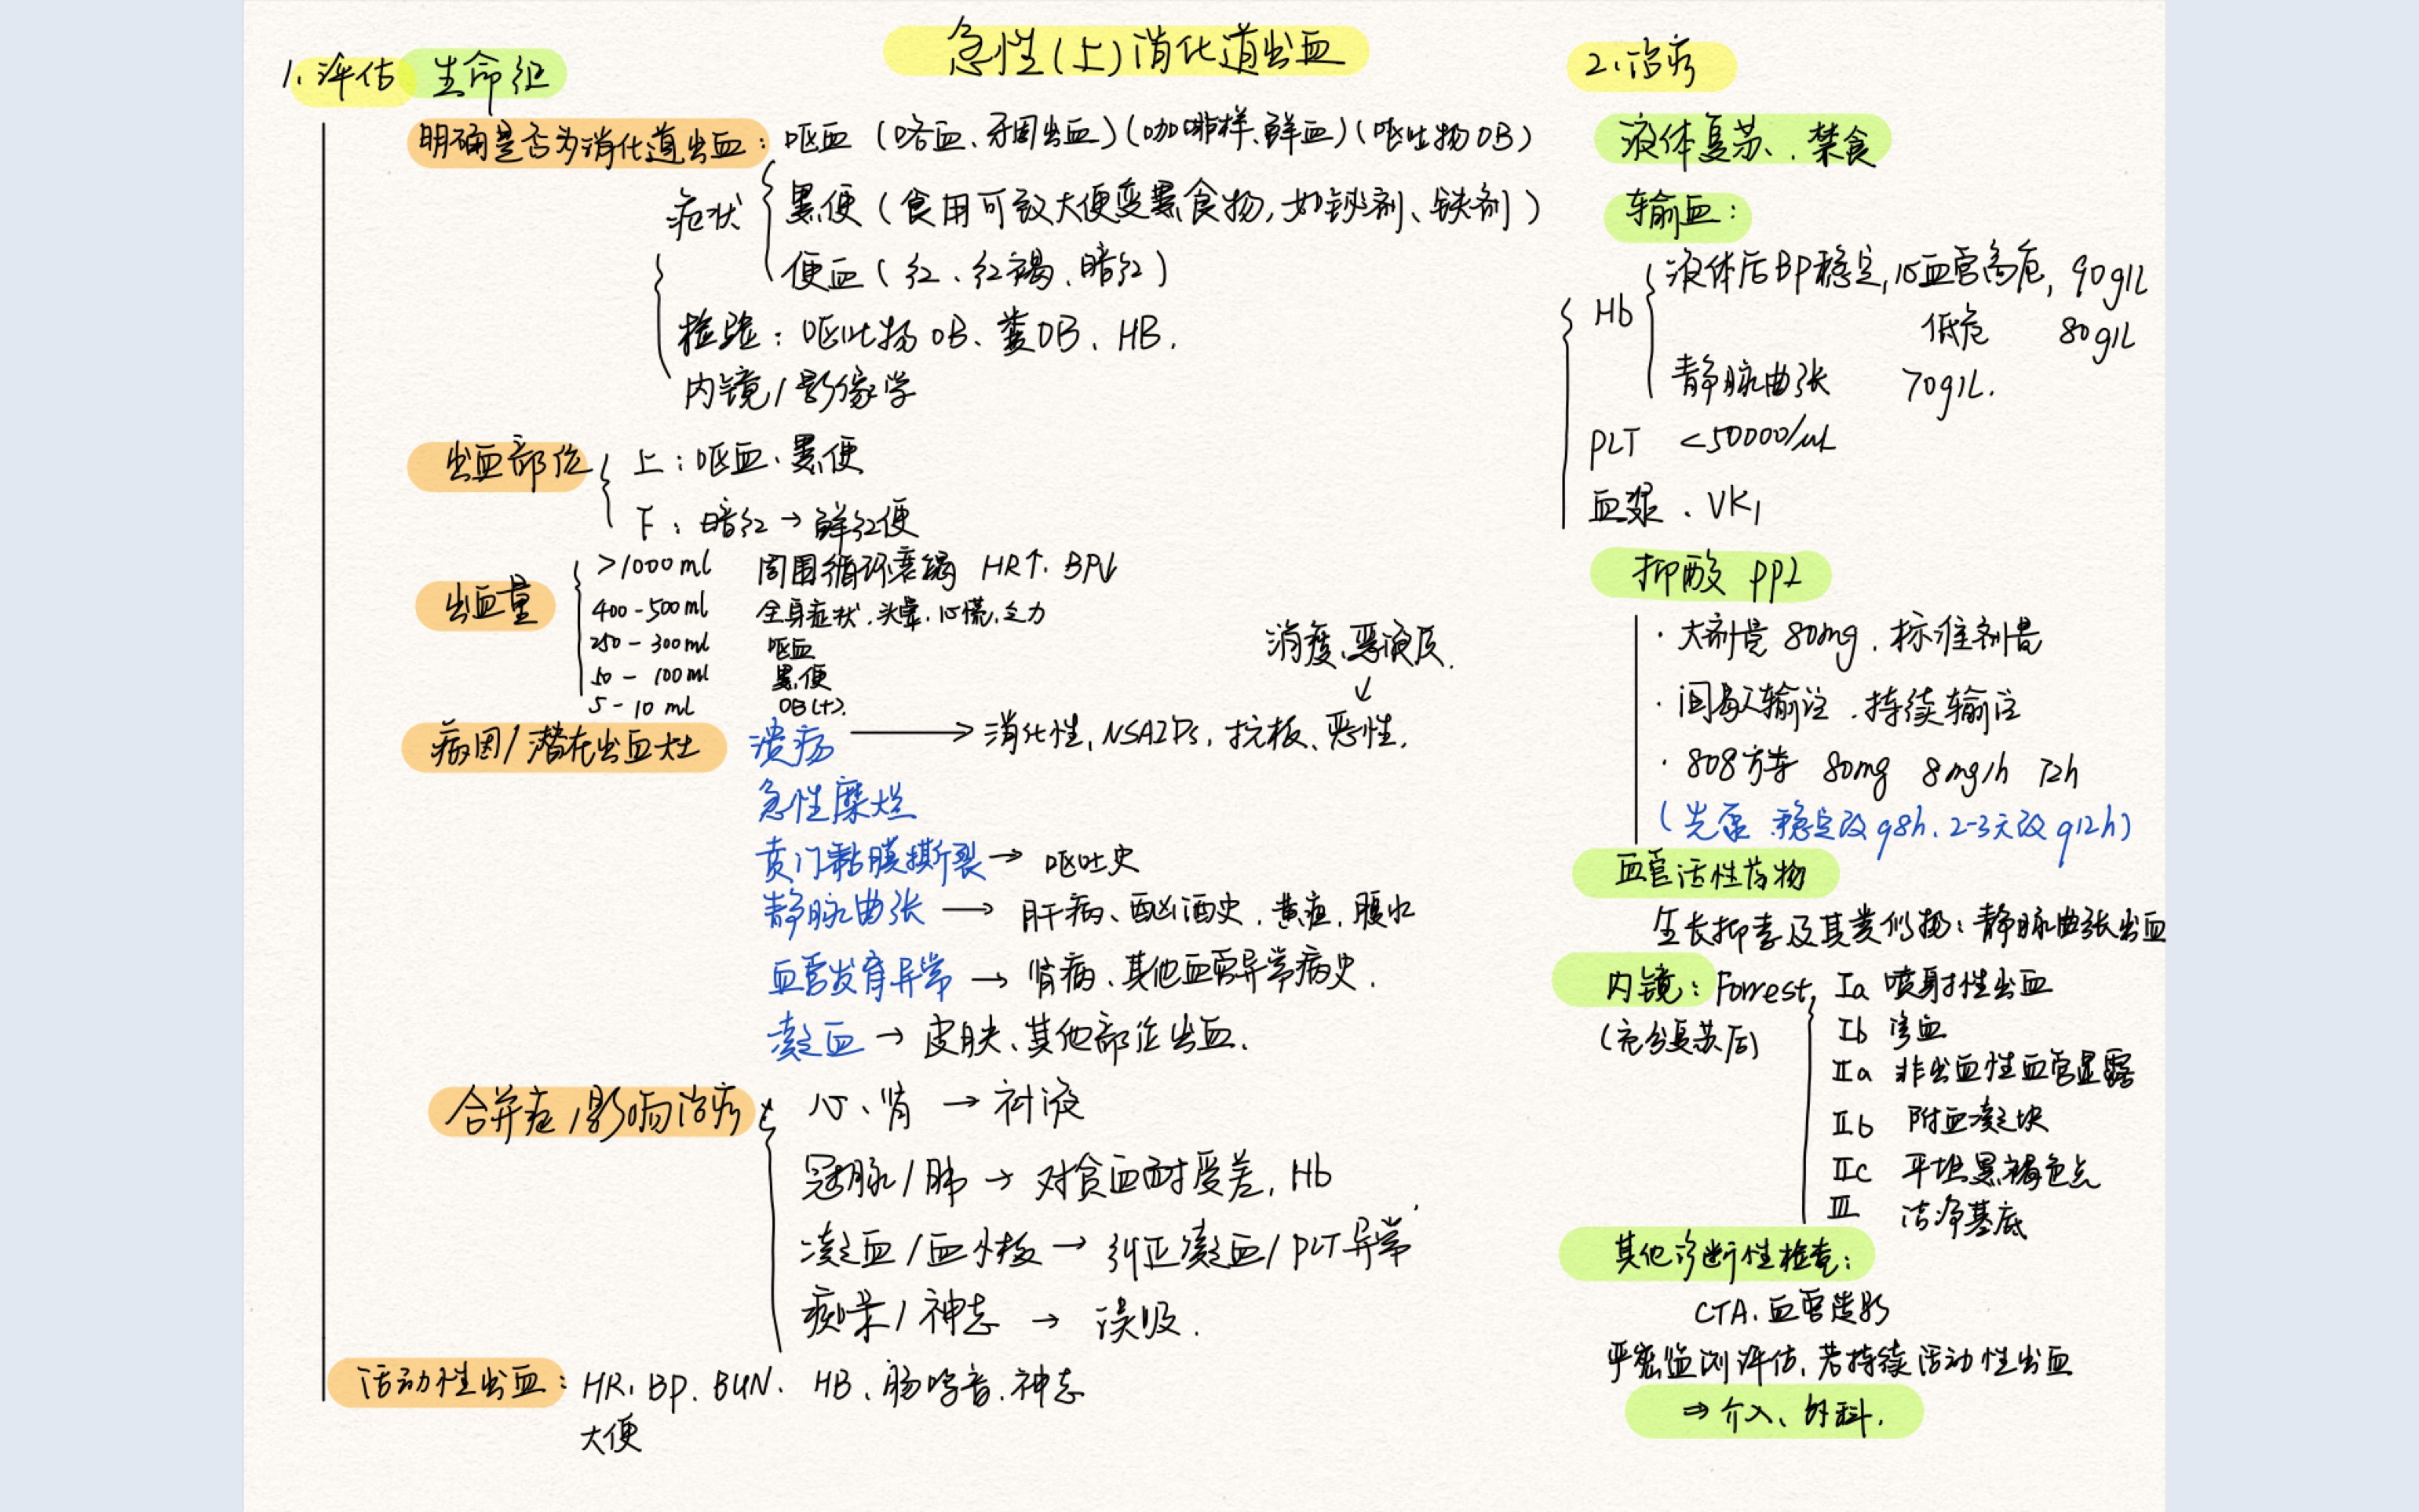 急性(上)消化道出血
1.评估 生命征
明确是否为消化道出血: 呕血 (咯血、牙周出血)(咖啡样、鲜血)(呕吐物OB)
症状 黑便 (食用可致大便变黑食物,如铋剂、铁剂)
便血 (红、红褐、暗红)
检验: 呕吐物OB、粪OB、HB.
内镜/影像学
出血部位
上: 呕血、黑便
下: 暗红→鲜红便
出血量
>1000ml 周围循环衰竭 HR↑. BP↓
400-500ml 全身症状.头晕.心慌.乏力
250-300ml 呕血
50-100ml 黑便
5-10ml OB(+).
消瘦、恶液质.
↓
病因/潜在出血灶 溃疡 → 消化性, NSAIDs, 抗板、恶性.
急性糜烂
贲门黏膜撕裂→ 呕吐史
静脉曲张 → 肝病、酗酒史.黄疸.腹水
血管发育异常 → 肾病、其他血管异常病史.
凝血 → 皮肤、其他部位出血.
合并症/影响治疗 心、肾 → 补液
冠脉/肺 → 对贫血耐受差, Hb
凝血/血小板 → 纠正凝血/PLT异常
痴呆/神志 → 误吸.
活动性出血: HR, BP. BUN. HB、肠鸣音.神志
大便
2.治疗
液体复苏、禁食
输血:
Hb 液体后BP稳定,心血管高危, 90g/L
低危 80g/L
静脉曲张 70g/L.
PLT <50000/uL
血浆、VK1
抑酸 PPI
·大剂量 80mg.标准剂量
·间歇输注.持续输注
·808方案 80mg 8mg/h 72h
(先泵 稳定改q8h、2-3天改q12h)
血管活性药物
生长抑素及其类似物: 静脉曲张出血
内镜: Forrest, Ia 喷射性出血
(充分复苏后) Ib 渗血
IIa 非出血性血管显露
IIb 附血凝块
IIc 平坦黑褐色点
III 洁净基底
其他诊断性检查:
CTA.血管造影
严密监测评估,若持续活动性出血
⇒ 介入、外科.